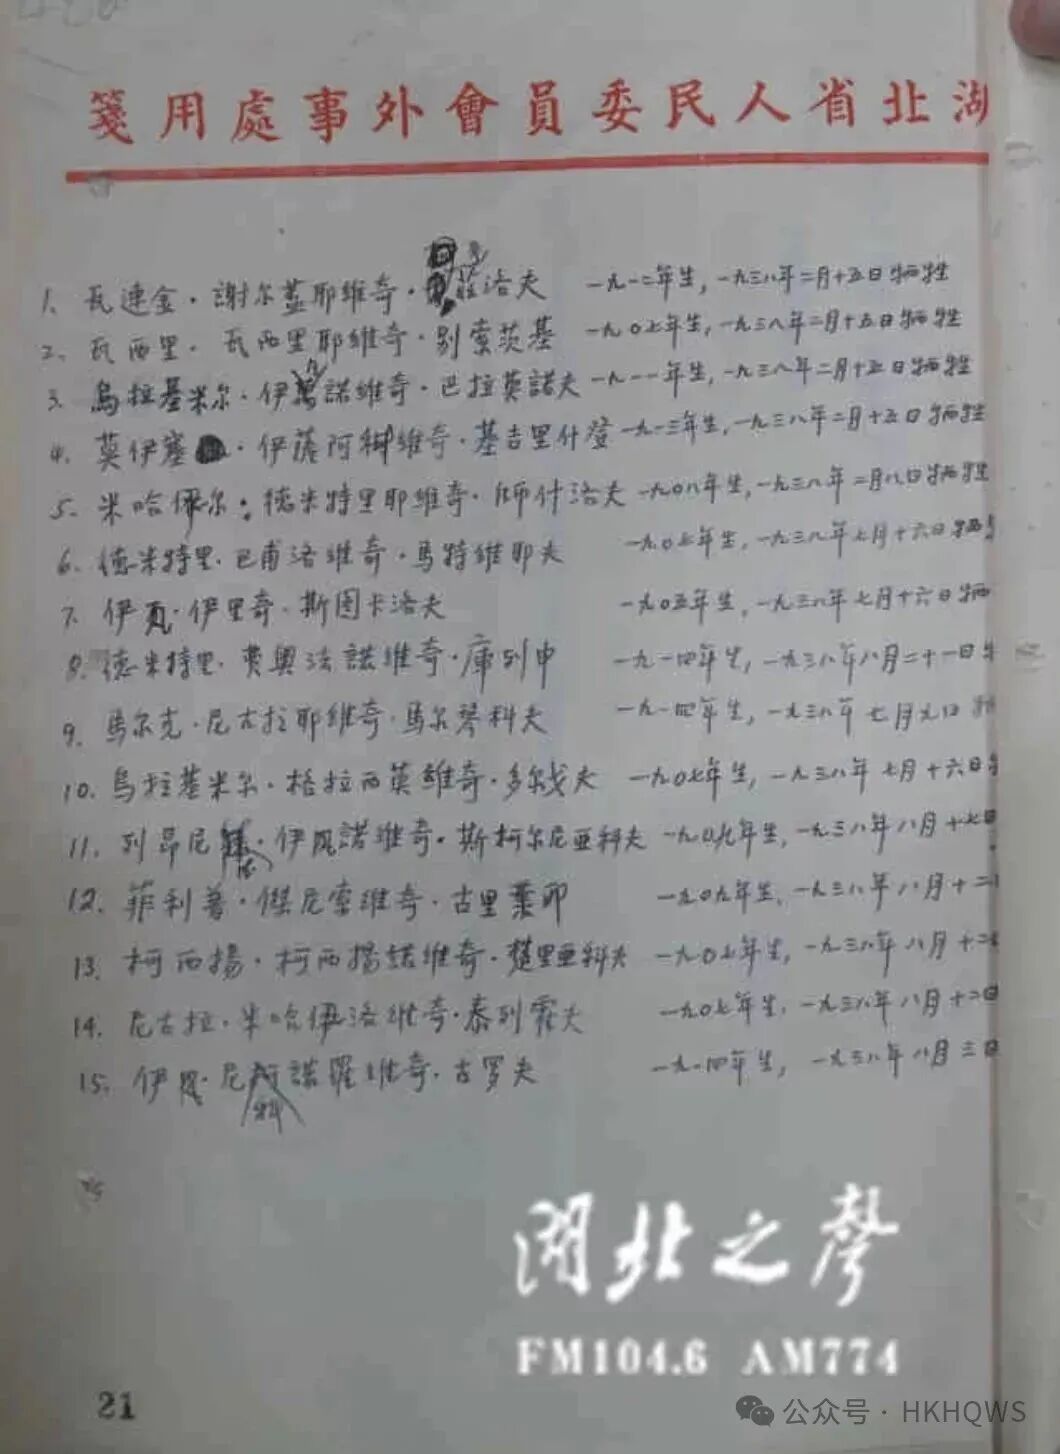 湖北省人民委員會外事處用箋
1. 瓦連金·謝尔蓋耶維奇·洛夫 一九一二年生，一九三八年二月十五日牺牲
2. 瓦西里·瓦西里耶維奇·别索茨基 一九〇七年生，一九三八年二月十五日牺牲
3. 烏拉基米尔·伊凡諾維奇·巴拉莫諾夫 一九一一年生，一九三八年二月十五日牺牲
4. 莫伊塞·伊薩阿柯維奇·基吉里什登 一九一三年生，一九三八年二月十五日牺牲
5. 米哈伊尔·德米特里耶維奇·師什洛夫 一九〇八年生，一九三八年二月八日牺牲
6. 德米特里·巴甫洛維奇·馬特維耶夫 一九〇七年生，一九三八年七月十六日牺
7. 伊凡·伊里奇·斯图卡洛夫 一九〇五年生，一九三八年七月十六日牺
8. 德米特里·費奥法諾維奇·庫列申 一九一四年生，一九三八年八月二十一日
9. 馬尔克·尼古拉耶維奇·馬尔琴科夫 一九一四年生，一九三八年七月九日
10. 烏拉基米尔·格拉西莫維奇·多尔戈夫 一九〇七年生，一九三八年七月十六日
11. 列昂尼德·伊凡諾維奇·斯柯尔尼亚科夫 一九〇九年生，一九三八年八月十七日
12. 菲利普·傑尼索維奇·古里葉耶 一九〇九年生，一九三八年八月十二
13. 柯西揚·柯西揚諾維奇·楚里亚科夫 一九〇七年生，一九三八年八月十二
14. 尼古拉·米哈伊洛維奇·泰列霍夫 一九〇七年生，一九三八年八月十二日
15. 伊凡·尼科諾羅維奇·古罗夫 一九一四年生，一九三八年八月三日
湖北之聲
FM104.6 AM774
21
公众号·HKHQWS